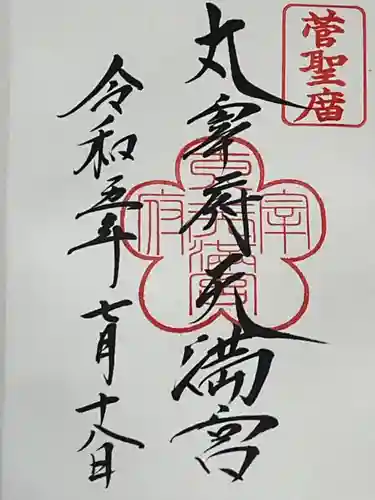 菅聖庿
丸宰府天満宮
令和五年七月十八日